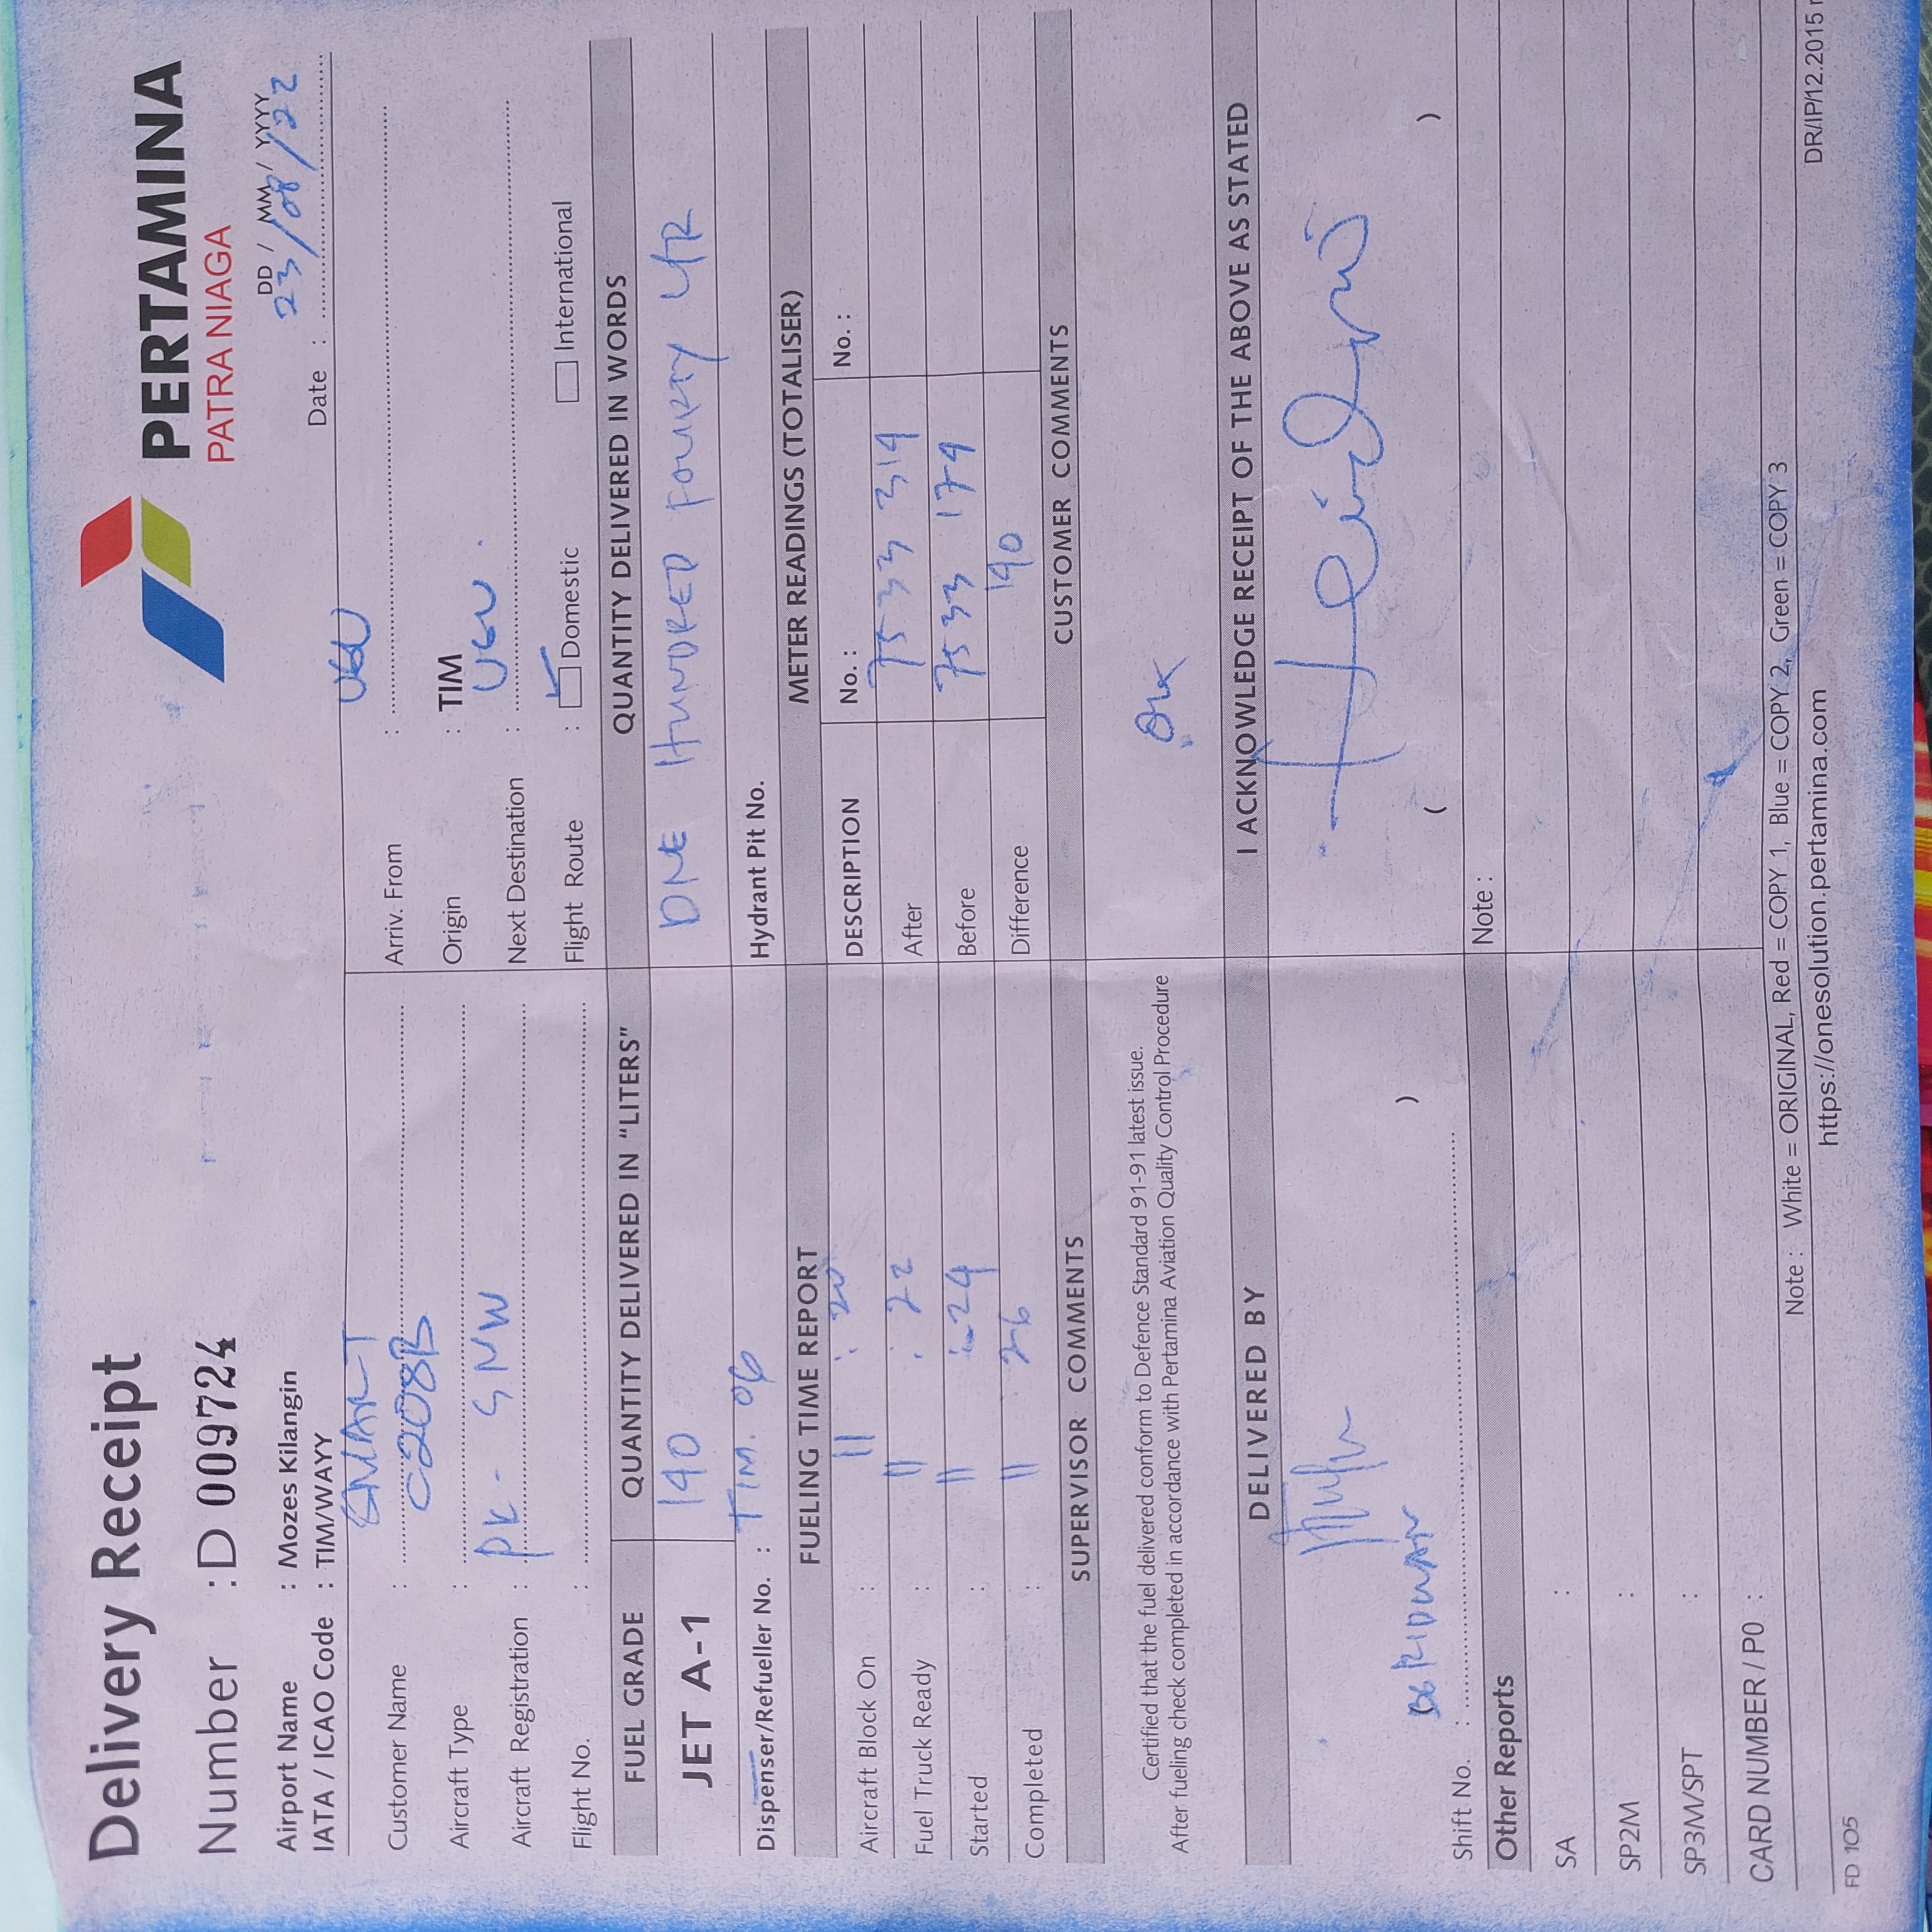 Delivery Receipt
PERTAMINA
PATRA NIAGA
Number : D 009724
DD / MM / YYYY
Date : 23/08/22
Airport Name : Mozes Kilangin
IATA / ICAO Code : TIM/WAYY
Customer Name : SMART
Aircraft Type : C208B
Aircraft Registration : PK - SNW
Flight No. :
Arriv. From : UGU
Origin : TIM
Next Destination : UGU.
Flight Route : Domestic International
FUEL GRADE
QUANTITY DELIVERED IN "LITERS"
QUANTITY DELIVERED IN WORDS
JET A-1
140
ONE HUNDRED FOURTY LTR
Dispenser/Refueller No. : TIM. 06
Hydrant Pit No.
FUELING TIME REPORT
METER READINGS (TOTALISER)
DESCRIPTION No. : No. :
Aircraft Block On : 11 : 20
After 7533 314
Fuel Truck Ready : 11 : 22
Before 7533 174
Started : 11 : 24
Difference 140
Completed : 11 26
SUPERVISOR COMMENTS
CUSTOMER COMMENTS
Certified that the fuel delivered conform to Defence Standard 91-91 latest issue.
After fueling check completed in accordance with Pertamina Aviation Quality Control Procedure
OK
DELIVERED BY
I ACKNOWLEDGE RECEIPT OF THE ABOVE AS STATED
RIDWAN )
( )
Shift No. :
Note :
Other Reports
SA :
SP2M :
SP3M/SPT :
CARD NUMBER / PO :
Note : White = ORIGINAL, Red = COPY 1, Blue = COPY 2, Green = COPY 3
FD 105
https://onesolution.pertamina.com
DR/IP/12.2015